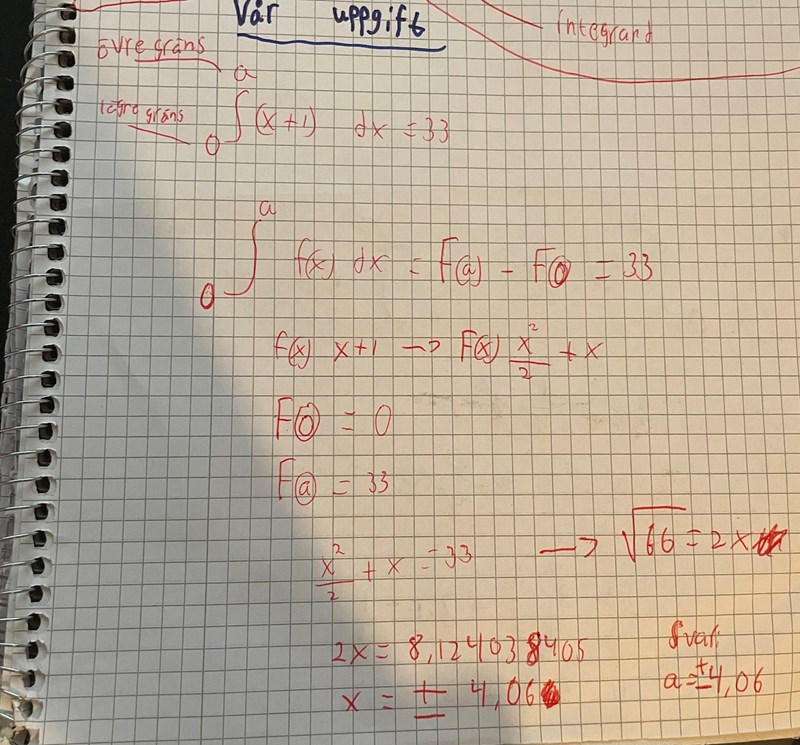 Vår uppgift
integrand
övre gräns
a
∫(x+1) dx = 33
gräns
0
a
∫ f(x) dx = F(a) - F(0) = 33
0
f(x) x+1 → F(x) x²/2 + x
F(0) = 0
F(a) = 33
x²/2 + x = 33 → √66 = 2x
2x = 8,124038405
x = ± 4,06
Svar:
a = ±4,06